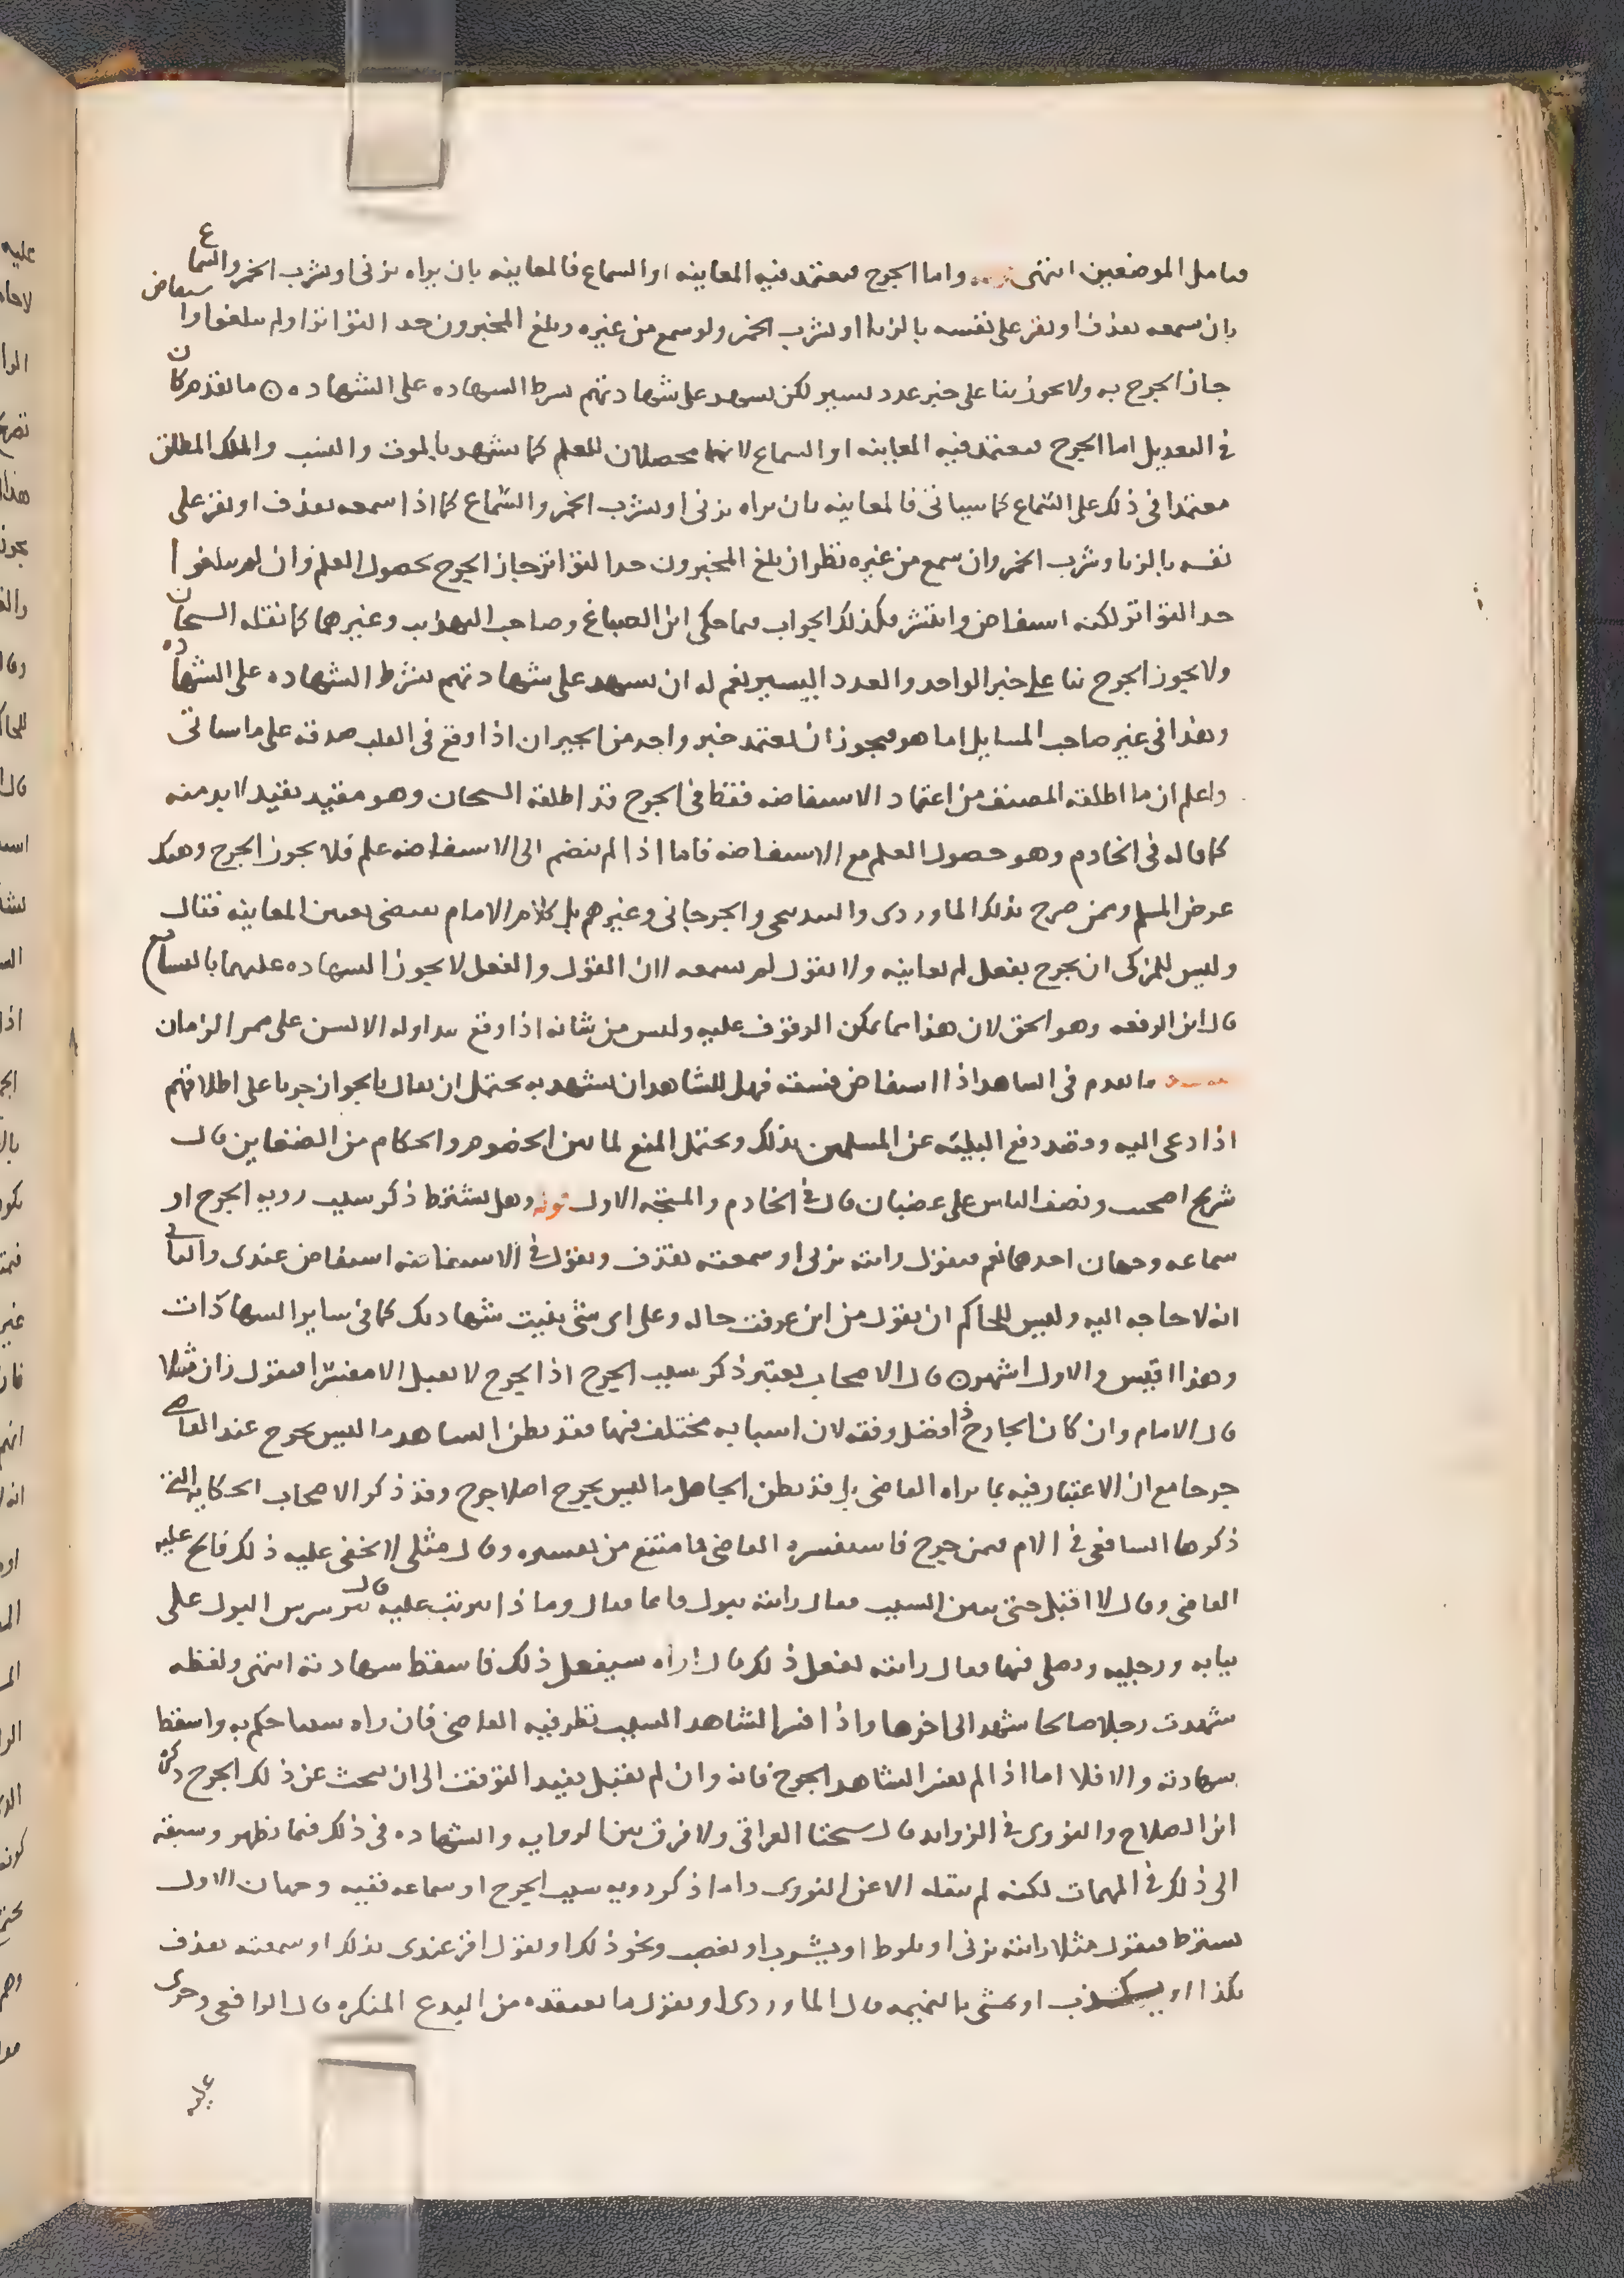 فتامل الموضعين انتهى واما الجرح فيعتمد فيه المعاينه او السماع فالمعاينه بان يراه يزني او يشرب الخمر والسماع
بان سمعه يقذف او يقر على نفسه بالزنا او شرب الخمر ولو سمع من غيره وبلغ المخبرون حد التواتر او لم يبلغوا واستفاض
جاز الجرح به ولا يجوز بنا على خبر عدد يسير لكن يشهد على شهادتهم بشرط الشهاده على الشهاده ٥ ما تقدم كان
في التعديل اما الجرح فيعتمد فيه المعاينه او السماع لانهما محصلان للعلم كما يشهد بالموت والنسب والملك المطلق
معتمدا في ذلك على السماع كما سياتي فالمعاينه بان يراه يزني او يشرب الخمر والسماع كما اذا سمعه يقذف او يقر على
نفسه بالزنا وشرب الخمر وان سمع من غيره نظر ان بلغ المخبرون حد التواتر جاز الجرح لحصول العلم وان لم يبلغوا
حد التواتر لكنه استفاض وانتشر فكذلك الجواب فيما حكى ابن الصباغ وصاحب التهذيب وغيرهما كما نقله الشيخان
ولا يجوز الجرح بنا على خبر الواحد والعدد اليسير نعم له ان يشهد على شهادتهم بشرط الشهاده على الشهاده
وهذا في غير صاحب المسايل اما هو فيجوز ان يعتمد خبر واحد من الجيران اذا وقع في القلب صدقه على ما سياتي
واعلم ان ما اطلقه المصنف من اعتماد الاستفاضه فقط في الجرح قد اطلقه الشيخان وهو مقيد بقيد لا بد منه
كما قاله في الخادم وهو حصول العلم مع الاستفاضه فاما اذا لم ينضم الى الاستفاضه علم فلا يجوز الجرح وهتك
عرض المسلم وممن صرح بذلك الماوردي والبندنيجي والجرجاني وغيرهم بل كلام الامام يقتضي تعين المعاينه فقال
وليس للمزكي ان يجرح بفعل لم يعاينه ولا بقول لم يسمعه لان القول والفعل لا يجوز الشهاده عليهما بالتسامع
قال ابن الرفعه وهو الحق لان هذا مما يمكن الوقوف عليه وليس من شانه اذا وقع تداوله الالسن على ممر الزمان
ما تقدم في الشاهد اذا استفاض فسقه فهل للشاهد ان يشهد به يحتمل ان يقال بالجواز جريا على اطلاقهم
اذا دعي اليه وقصد دفع البليه عن المسلمين بذلك ويحتمل المنع لما بين الخصوم والحكام من الضغاين قال
شريح اصبحت ونصف الناس على غضبان قال في الخادم والمتجه الاول قوله وهل يشترط ذكر سبب رويه الجرح او
سماعه وجهان احدهما نعم فيقول رايته يزني او سمعته يقذف ويقول في الاستفاضه استفاض عندي والثاني
انه لا حاجه اليه وليس للحاكم ان يقول من اين عرفت حاله وعلى اي شي بنيت شهادتك كما في ساير الشهادات
وهذا اقيس والاول اشهر ٥ قال الاصحاب يعتبر ذكر سبب الجرح اذ الجرح لا يقبل الا مفسرا فيقول زان مثلا
قال الامام وان كان الجارح ذا فضل وفقه لان اسبابه مختلف فيها فقد يظن الشاهد ما ليس بجرح عند القاضي
جرحا مع ان الاعتبار فيه بما يراه القاضي بل قد يظن الجاهل ما ليس بجرح اصلا جرح وقد ذكر الاصحاب الحكايه التي
ذكرها الشافعي في الام فيمن جرح فاستفسره القاضي فامتنع من تفسيره وقال مثلي لا يخفى عليه ذلك فالح عليه
القاضي وقال لا اقبل حتى تبين السبب فقال رايته يبول قايما فقال وما ذا يترتب عليه قال يترشرش البول على
ثيابه ورجليه ويصلي فيها فقال رايته يفعل ذلك قال اراه سيفعل ذلك فاسقط شهادته انتهى ولفظه
شهدت رجلا صالحا شهد الى اخرها واذا فسر الشاهد السبب نظر فيه القاضي فان راه سببا حكم به واسقط
شهادته والا فلا اما اذا لم يفسر الشاهد الجرح فانه وان لم يقبل يفيد التوقف الى ان يبحث عن ذلك الجرح ذكره
ابن الصلاح والنووي في الزوايد قال شيخنا العراقي ولا فرق بين الروايه والشهاده في ذلك فيما يظهر وسبقه
الى ذلك في المهمات لكنه لم ينقله الا عن النووي واما ذكر رويه سبب الجرح او سماعه ففيه وجهان الاول
يشترط فيقول مثلا رايته يزني او يلوط او يشرب او يغصب ونحو ذلك او يقول اقر عندي بذلك او سمعته يقذف
بكذا او يكذب او يمشي بالنميمه قال الماوردي او يقول ما يعتقده من البدع المنكره قال الرافعي وجرى
عليه